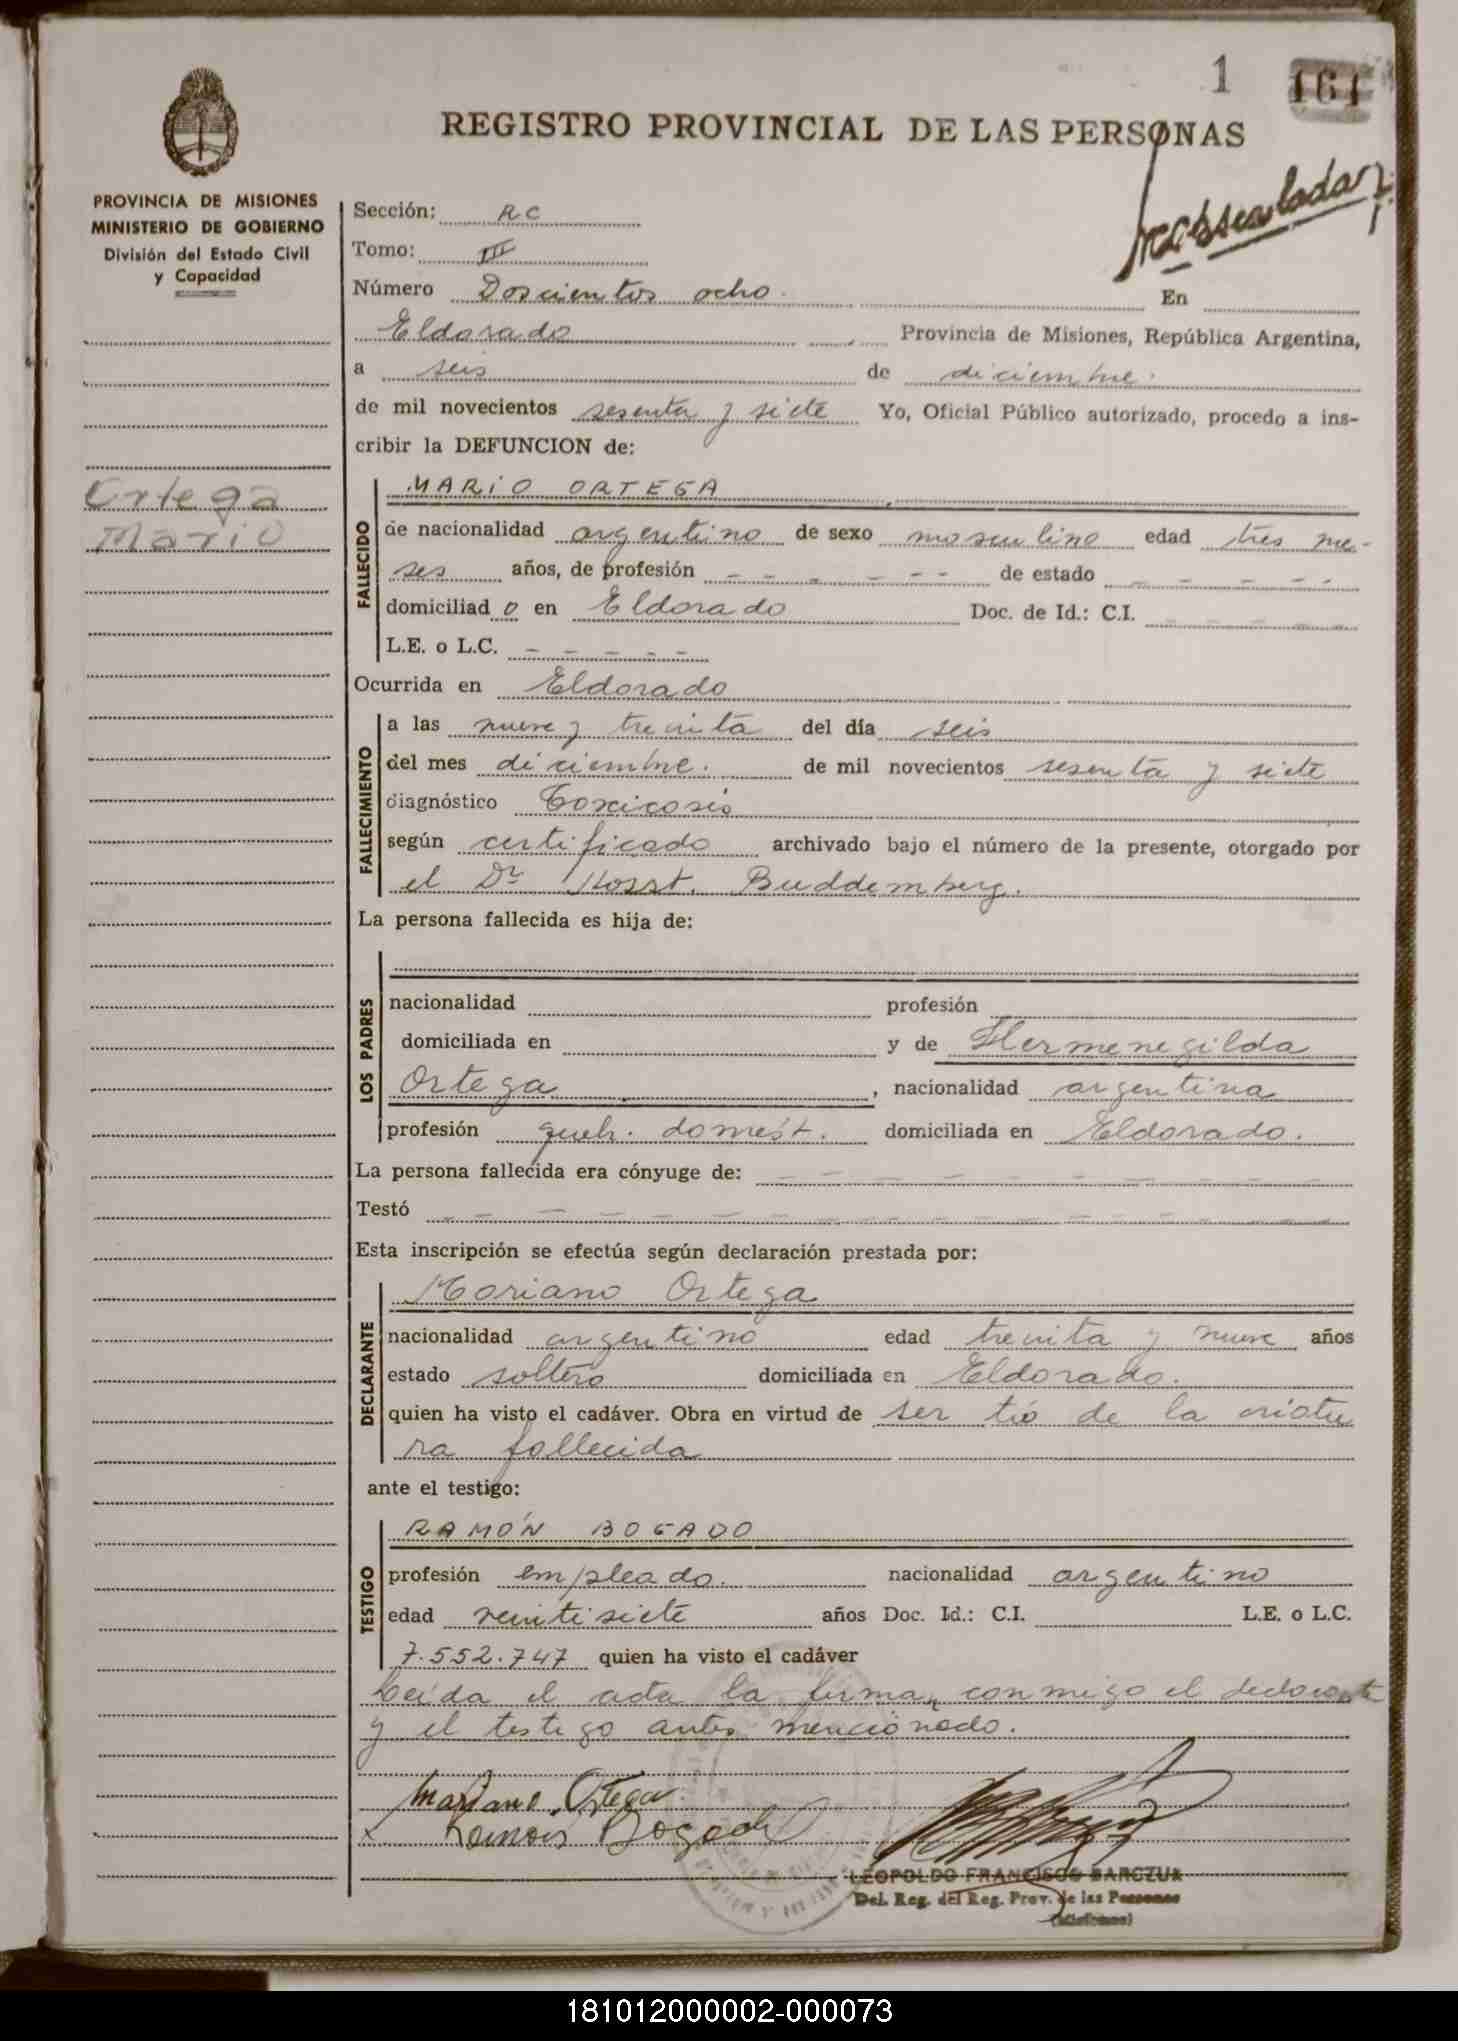 1 161
REGISTRO PROVINCIAL DE LAS PERSONAS
PROVINCIA DE MISIONES
MINISTERIO DE GOBIERNO
División del Estado Civil
y Capacidad
Ortega
Mario
Sección: RC
Tomo: III
Número Doscientos ocho. En
Eldorado Provincia de Misiones, República Argentina,
a seis de diciembre.
de mil novecientos sesenta y siete Yo, Oficial Público autorizado, procedo a ins-
cribir la DEFUNCION de:
FALLECIDO
MARIO ORTEGA
de nacionalidad argentino de sexo masculino edad tres me-
ses años, de profesión - - - - - - de estado - - - - -
domiciliad o en Eldorado Doc. de Id.: C.I. - - - - -
L.E. o L.C. - - - - -
Ocurrida en Eldorado
FALLECIMIENTO
a las nueve y treinta del día seis
del mes diciembre. de mil novecientos sesenta y siete
diagnóstico Toxicosis
según certificado archivado bajo el número de la presente, otorgado por
el Dr Horst. Buddemberg.
La persona fallecida es hija de:
LOS PADRES
nacionalidad profesión
domiciliada en y de Hermenegilda
Ortega, nacionalidad argentina
profesión queh. domést. domiciliada en Eldorado.
La persona fallecida era cónyuge de: - - - - - - - - -
Testó - - - - - - - - - - - - -
Esta inscripción se efectúa según declaración prestada por:
DECLARANTE
Mariano Ortega
nacionalidad argentino edad treinta y nueve años
estado soltero domiciliada en Eldorado.
quien ha visto el cadáver. Obra en virtud de ser tío de la criatu
ra fallecida
ante el testigo:
TESTIGO
RAMÓN BOGADO
profesión empleado. nacionalidad argentino
edad veintisiete años Doc. Id.: C.I. L.E. o L.C.
7.552.747 quien ha visto el cadáver
Leída el acta la firman conmigo el declarante
y el testigo antes mencionado.
Mariano Ortega
Ramón Bogado
LEOPOLDO FRANCISCO BARCZUK
Del. Reg. del Reg. Prov. de las Personas
(Misiones)
181012000002-000073